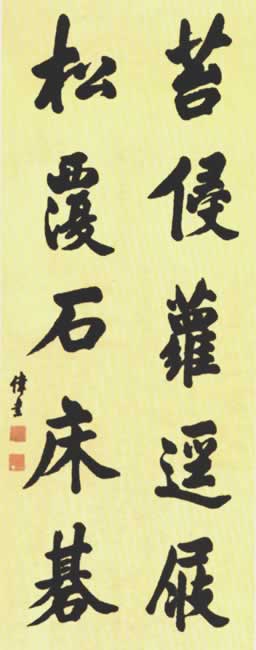 苔侵蘿逕屐
松覆石床碁
偉書